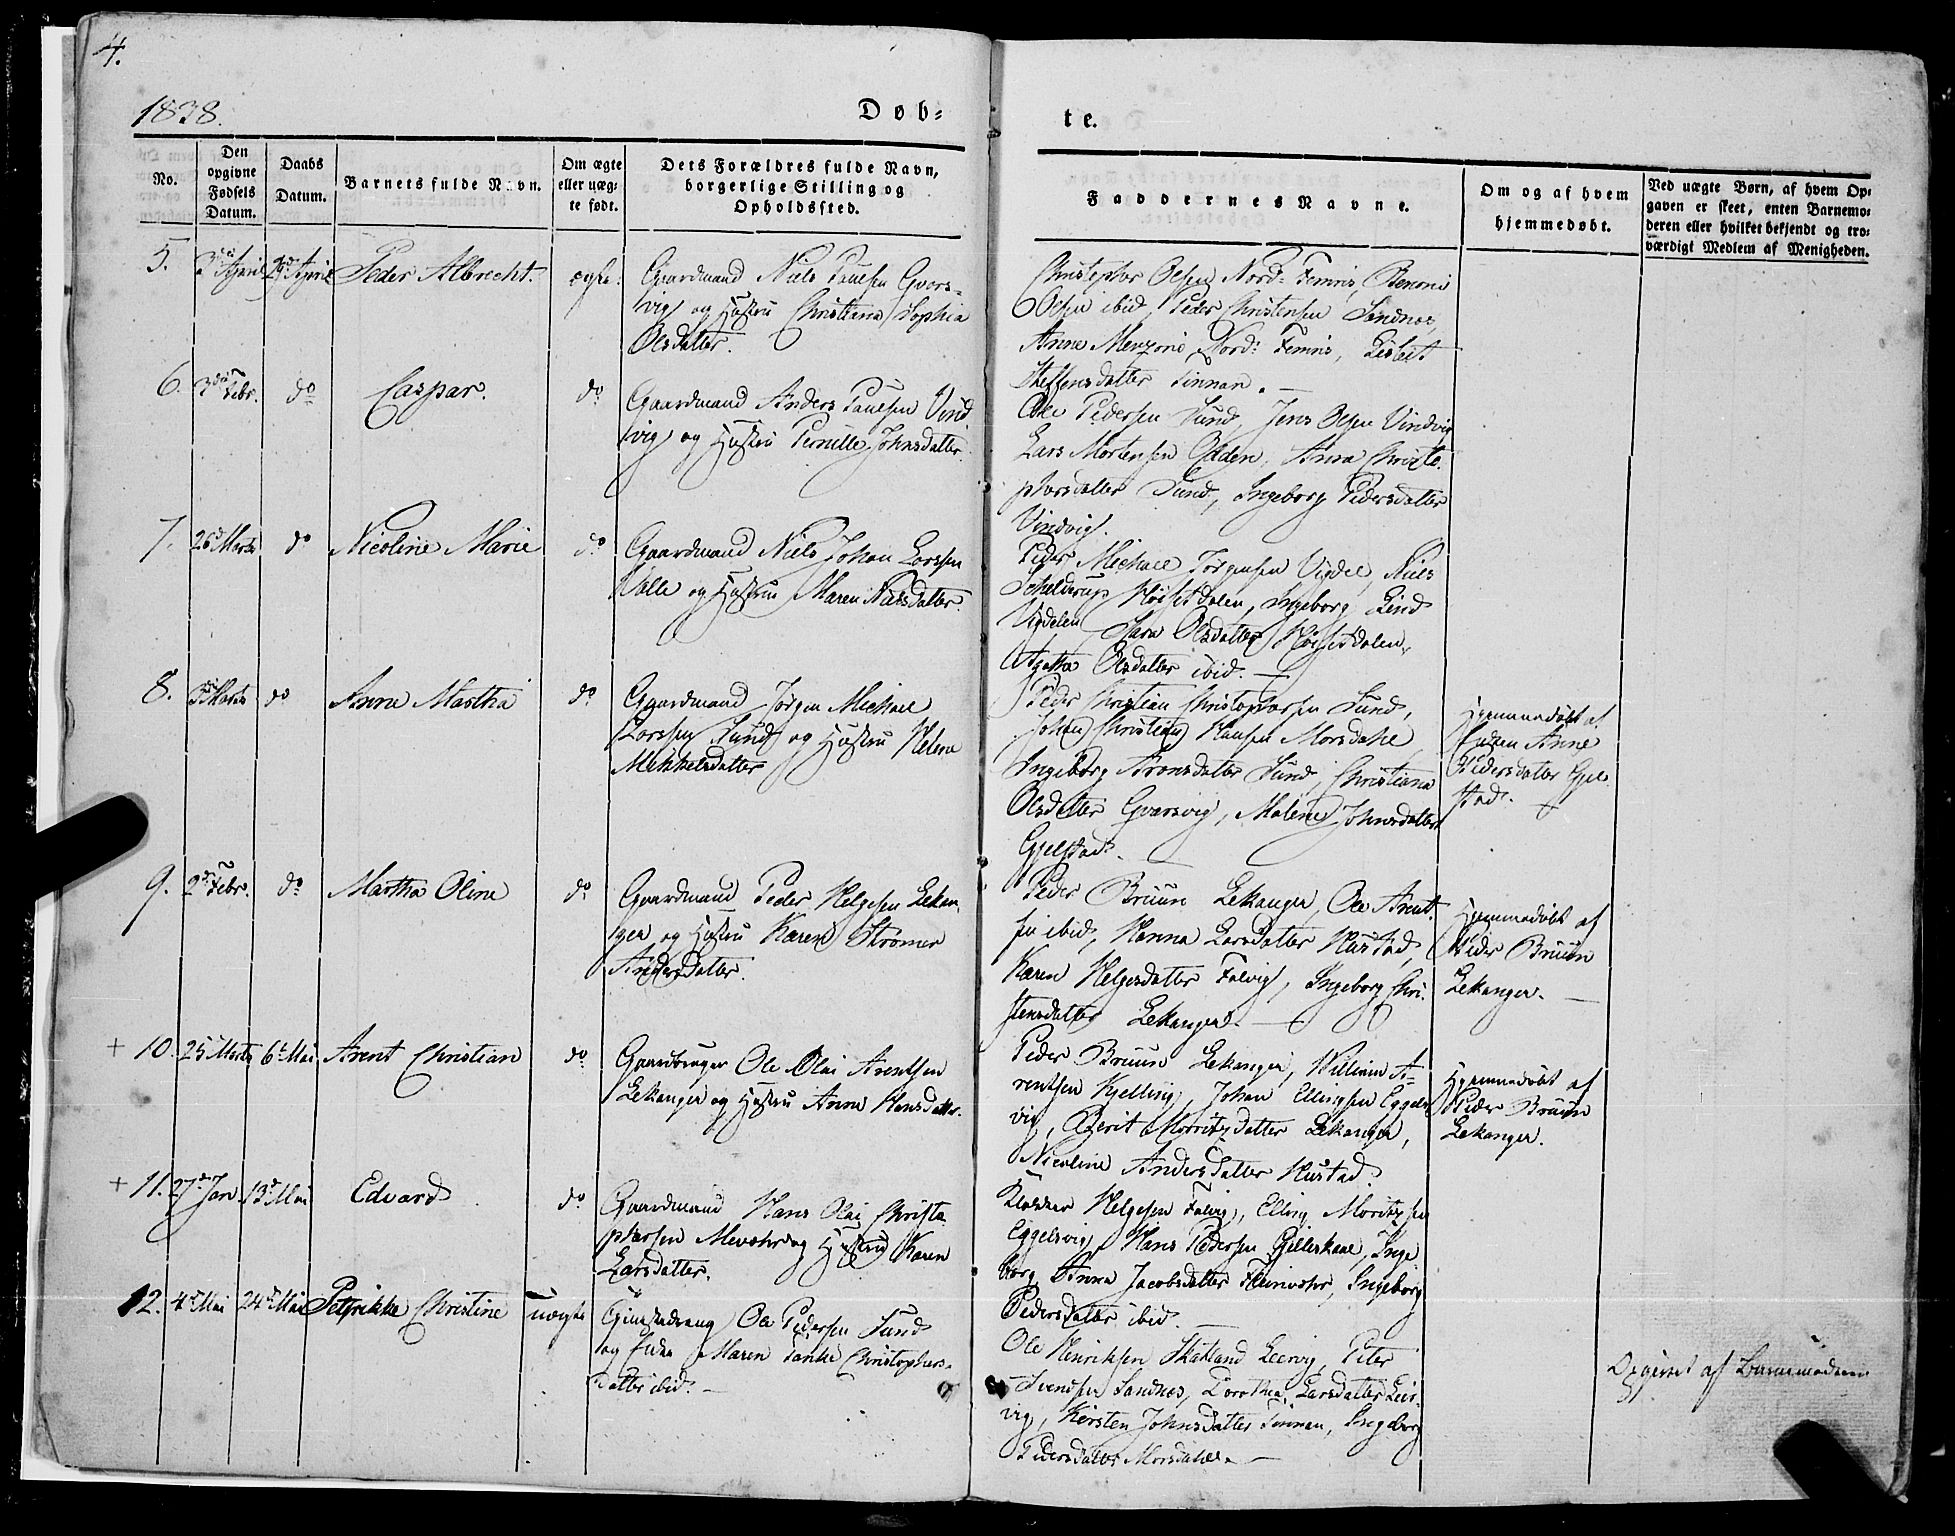 4.
1838.
Døb-
te.
No.
Den opgivne Fødsels Datum.
Daabs Datum.
Barnets fulde Navn.
Om ægte eller uæg- te født.
Dets Forældres fulde Navn, borgerlige Stilling og Opholdssted.
Faddernes Navne.
Om og af hvem hjemmedøbt.
Ved uægte Børn, af hvem Op- gaven er skeet, enten Barnemo- deren eller hvilket bekjendt og tro- værdigt Medlem af Menigheden.
5. April April Peder Albrecht. ægte.
Gaardmand Niels Paulsen Gvars-
vig og Hustru Christiana Sophia
Olsdatter.
Christophor Olsen Nord-Femris, Benoni
Olsen ibid, Peder Christensen Sandnes,
Anne Menzoni Nord-Femris, Lisbet
Steffensdatter Finnan. —
6. 3die Febr. do Caspar. do
Gaardmand Anders Paulsen Vind
vig og Hustru Pernille Johnsdatter.
Ole Pedersen Sund, Jens Olsen Vindvig
Lars Mortensen Odden, Anna Christo-
phorsdatter Sund, Ingeborg Pedersdatter
Vindvig.
7. 26 Marts do Nicoline Marie do
Gaardmand Niels Johan Larssen
Valle og Hustru Maren Nielsdatter.
Peder Michael Jørgensen Vigdel, Niels
Schelderup Høisetdalen, Ingeborg Lind
Vigdelen, Sara Olsdatter Høisetdalen,
Agatha Olsdatter ibid. —
8. Marts do Anne Martha do
Gaardmand Jørgen Michael
Larssen Sund og Hustru Helena
Mikkelsdatter
Peder Christian Christophorsen Sund,
Johan Christian Hansen Morsdahl
Ingeborg Aronsdatter Sund, Christiana
Olsdatter Gvarsvig, Malene Johnsdatter
Gjelstad.
Hjemmedøbt af
Enken Anne
Pedersdatter Gjel-
stad.
9. 2d Febr. do Martha Oline do
Gaardmand Peder Helgesen Lekan-
ger og Hustru Karen Strømer
Andersdatter.
Peder Bruun Lekanger, Ole Arent-
sen ibid, Hanna Larsdatter Hustad,
Karen Helgesdatter Falvig, Ingeborg Chri-
stensdatter Lekanger. —
Hjemmedøbt af
Peder Bruun
Lekanger. —
+ 10. 25 Marts 6t Mai Arent Christian do
Gaardbruger Ole Olai Arentsen
Lekanger og Hustru Anne Hansdatter.
Peder Bruun Lekanger, Willum A-
rentsen Kjelling, Johan Ellingsen Eggels-
vig, Berit Moritzdatter Lekanger,
Nicoline Andersdatter Hustad.
Hjemmedøbt af
Peder Bruun
Lekanger.
+ 11. 27d Jan. 13d Mai Edvard do
Gaardmand Hans Olai Christo-
phorsen Mevohr og Hustru Karen
Larsdatter.
Helgesen Falvig, Elling Moritzsen
Eggelsvig, Hans Pedersen Gilleskaal, Inge
borg Anna Jacobsdatter Fleinvohr, Ingeborg
Pedersdatter ibid. —
12. 4d Mai 24d Mai Petrikke Christine uægte
Ole Pedersen Sund
og Maren Tanke Christophers-
datter ibid. —
Ole Henriksen Skatland Leervig, Peter
Svendsen Sandnes, Dorothea Larsdatter Leir-
vig, Kirsten Johnsdatter Finnan, Ingeborg
Pedersdatter Morsdahl. —
Opgivet af Barnemoderen